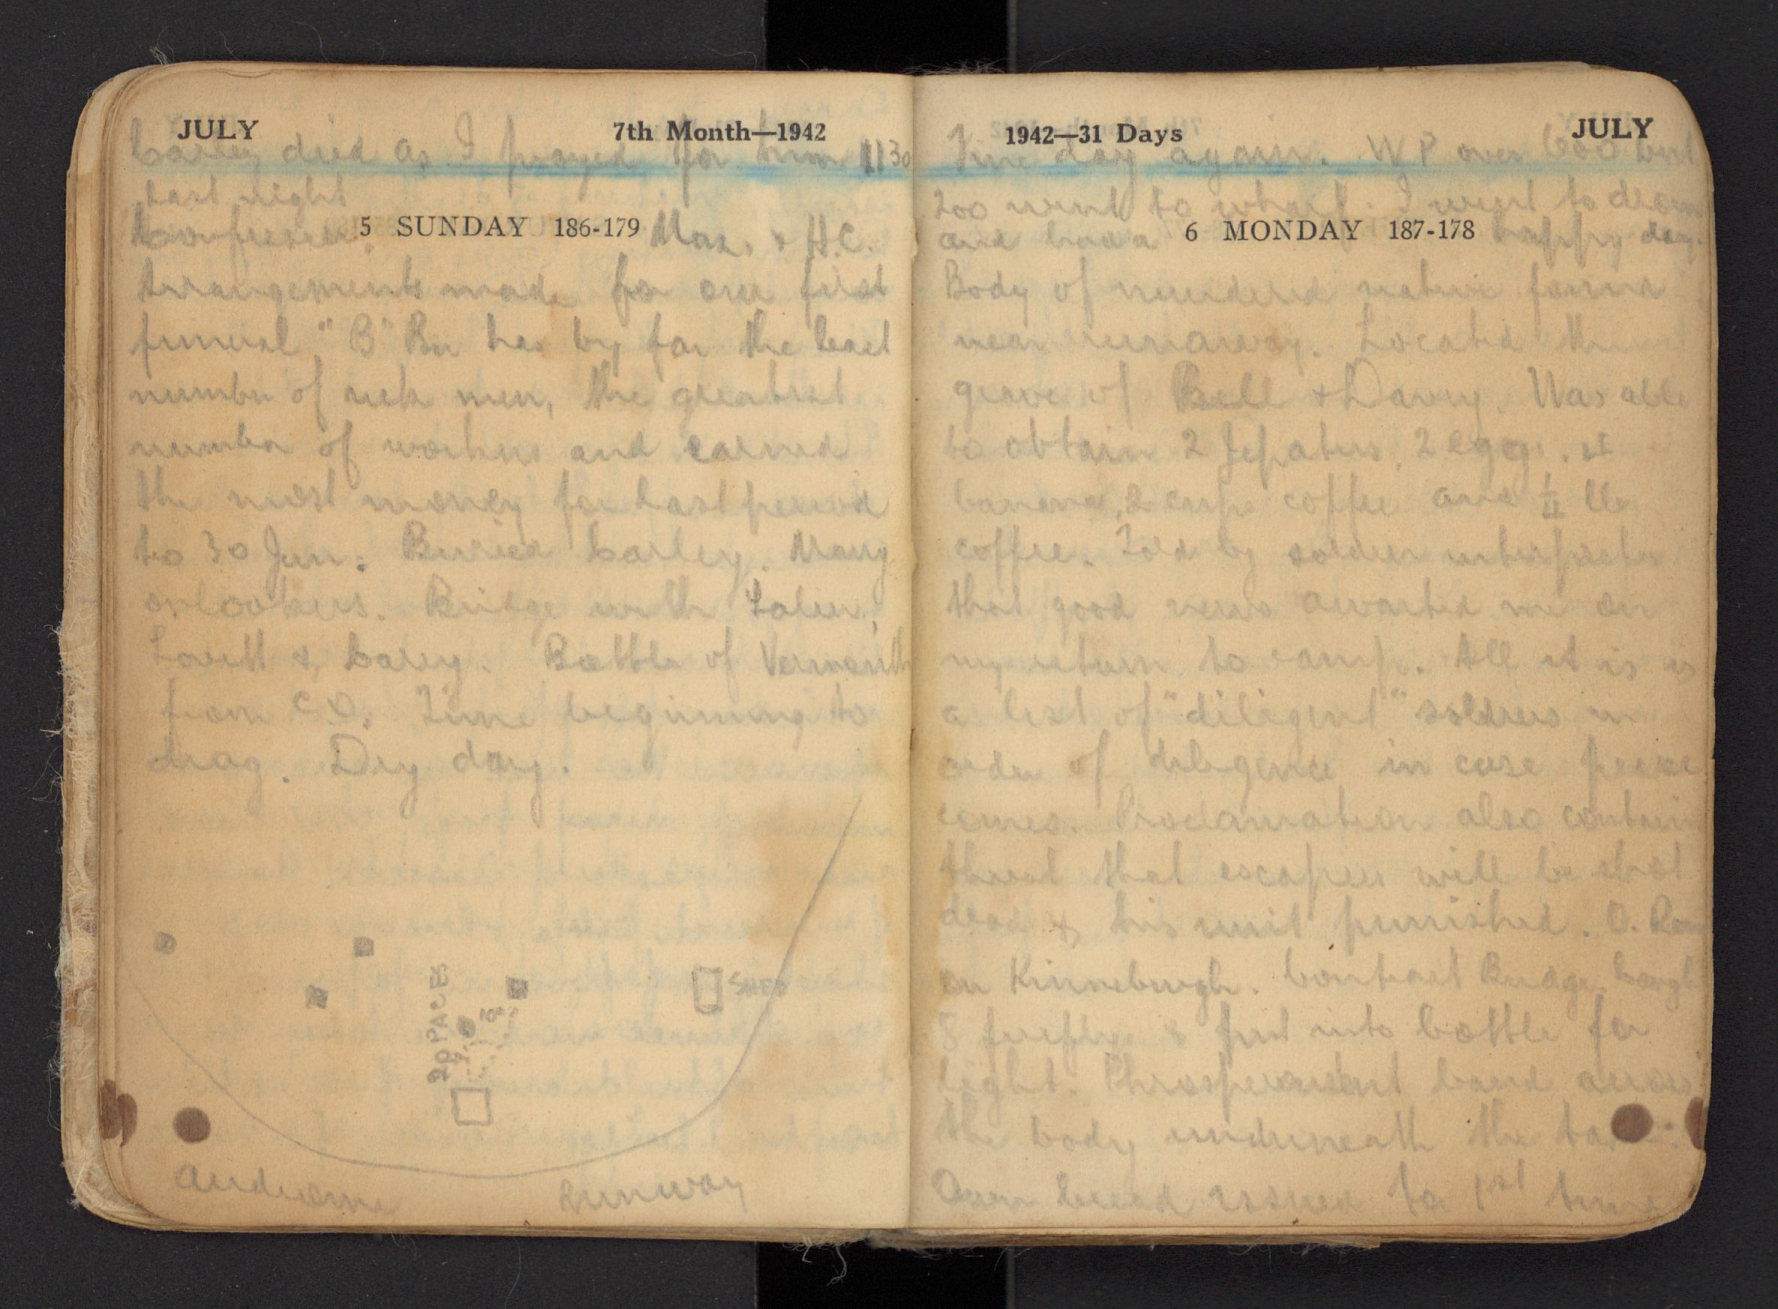 JULY 7th Month—1942
Carley died as I prayed for him 11 30
last night
5 SUNDAY 186-179
Confession. Mass & H.C.
Arrangements made for our first
funeral "B" Bn has by far the least
number of sick men, the greatest
number of workers and earned
the most money for last period
to 30 Jun. Buried Carley. Many
onlookers. Bridge with
Lovett & Carey. Bottle of Vermouth
from C.O. Time beginning to
drag. Dry day.
SHED
20 PACES
Aerdrome Runway
1942—31 Days JULY
Fine day again. W P over 600 but
200 went to wharf. I went to drome
and had a happy day.
6 MONDAY 187-178
Body of murdered native found
near runway. Located the
grave of Bell & Davey. Was able
to obtain 2 2 eggs,
banana, 2 cups coffee and ¼ lb
coffee. Told by soldier interpreter
that good news awaited me on
my return to camp. All it is is
a list of "diligent" soldiers in
order of diligence in case peace
comes. Proclamation also contains
threat that escapees will be shot
dead & his unit punished. O. Rm
on Kinneburgh. Contract Bridge. Caught
8 fireflys & put into bottle for
light. band across
the body underneath the
Own bread issued for 1st time